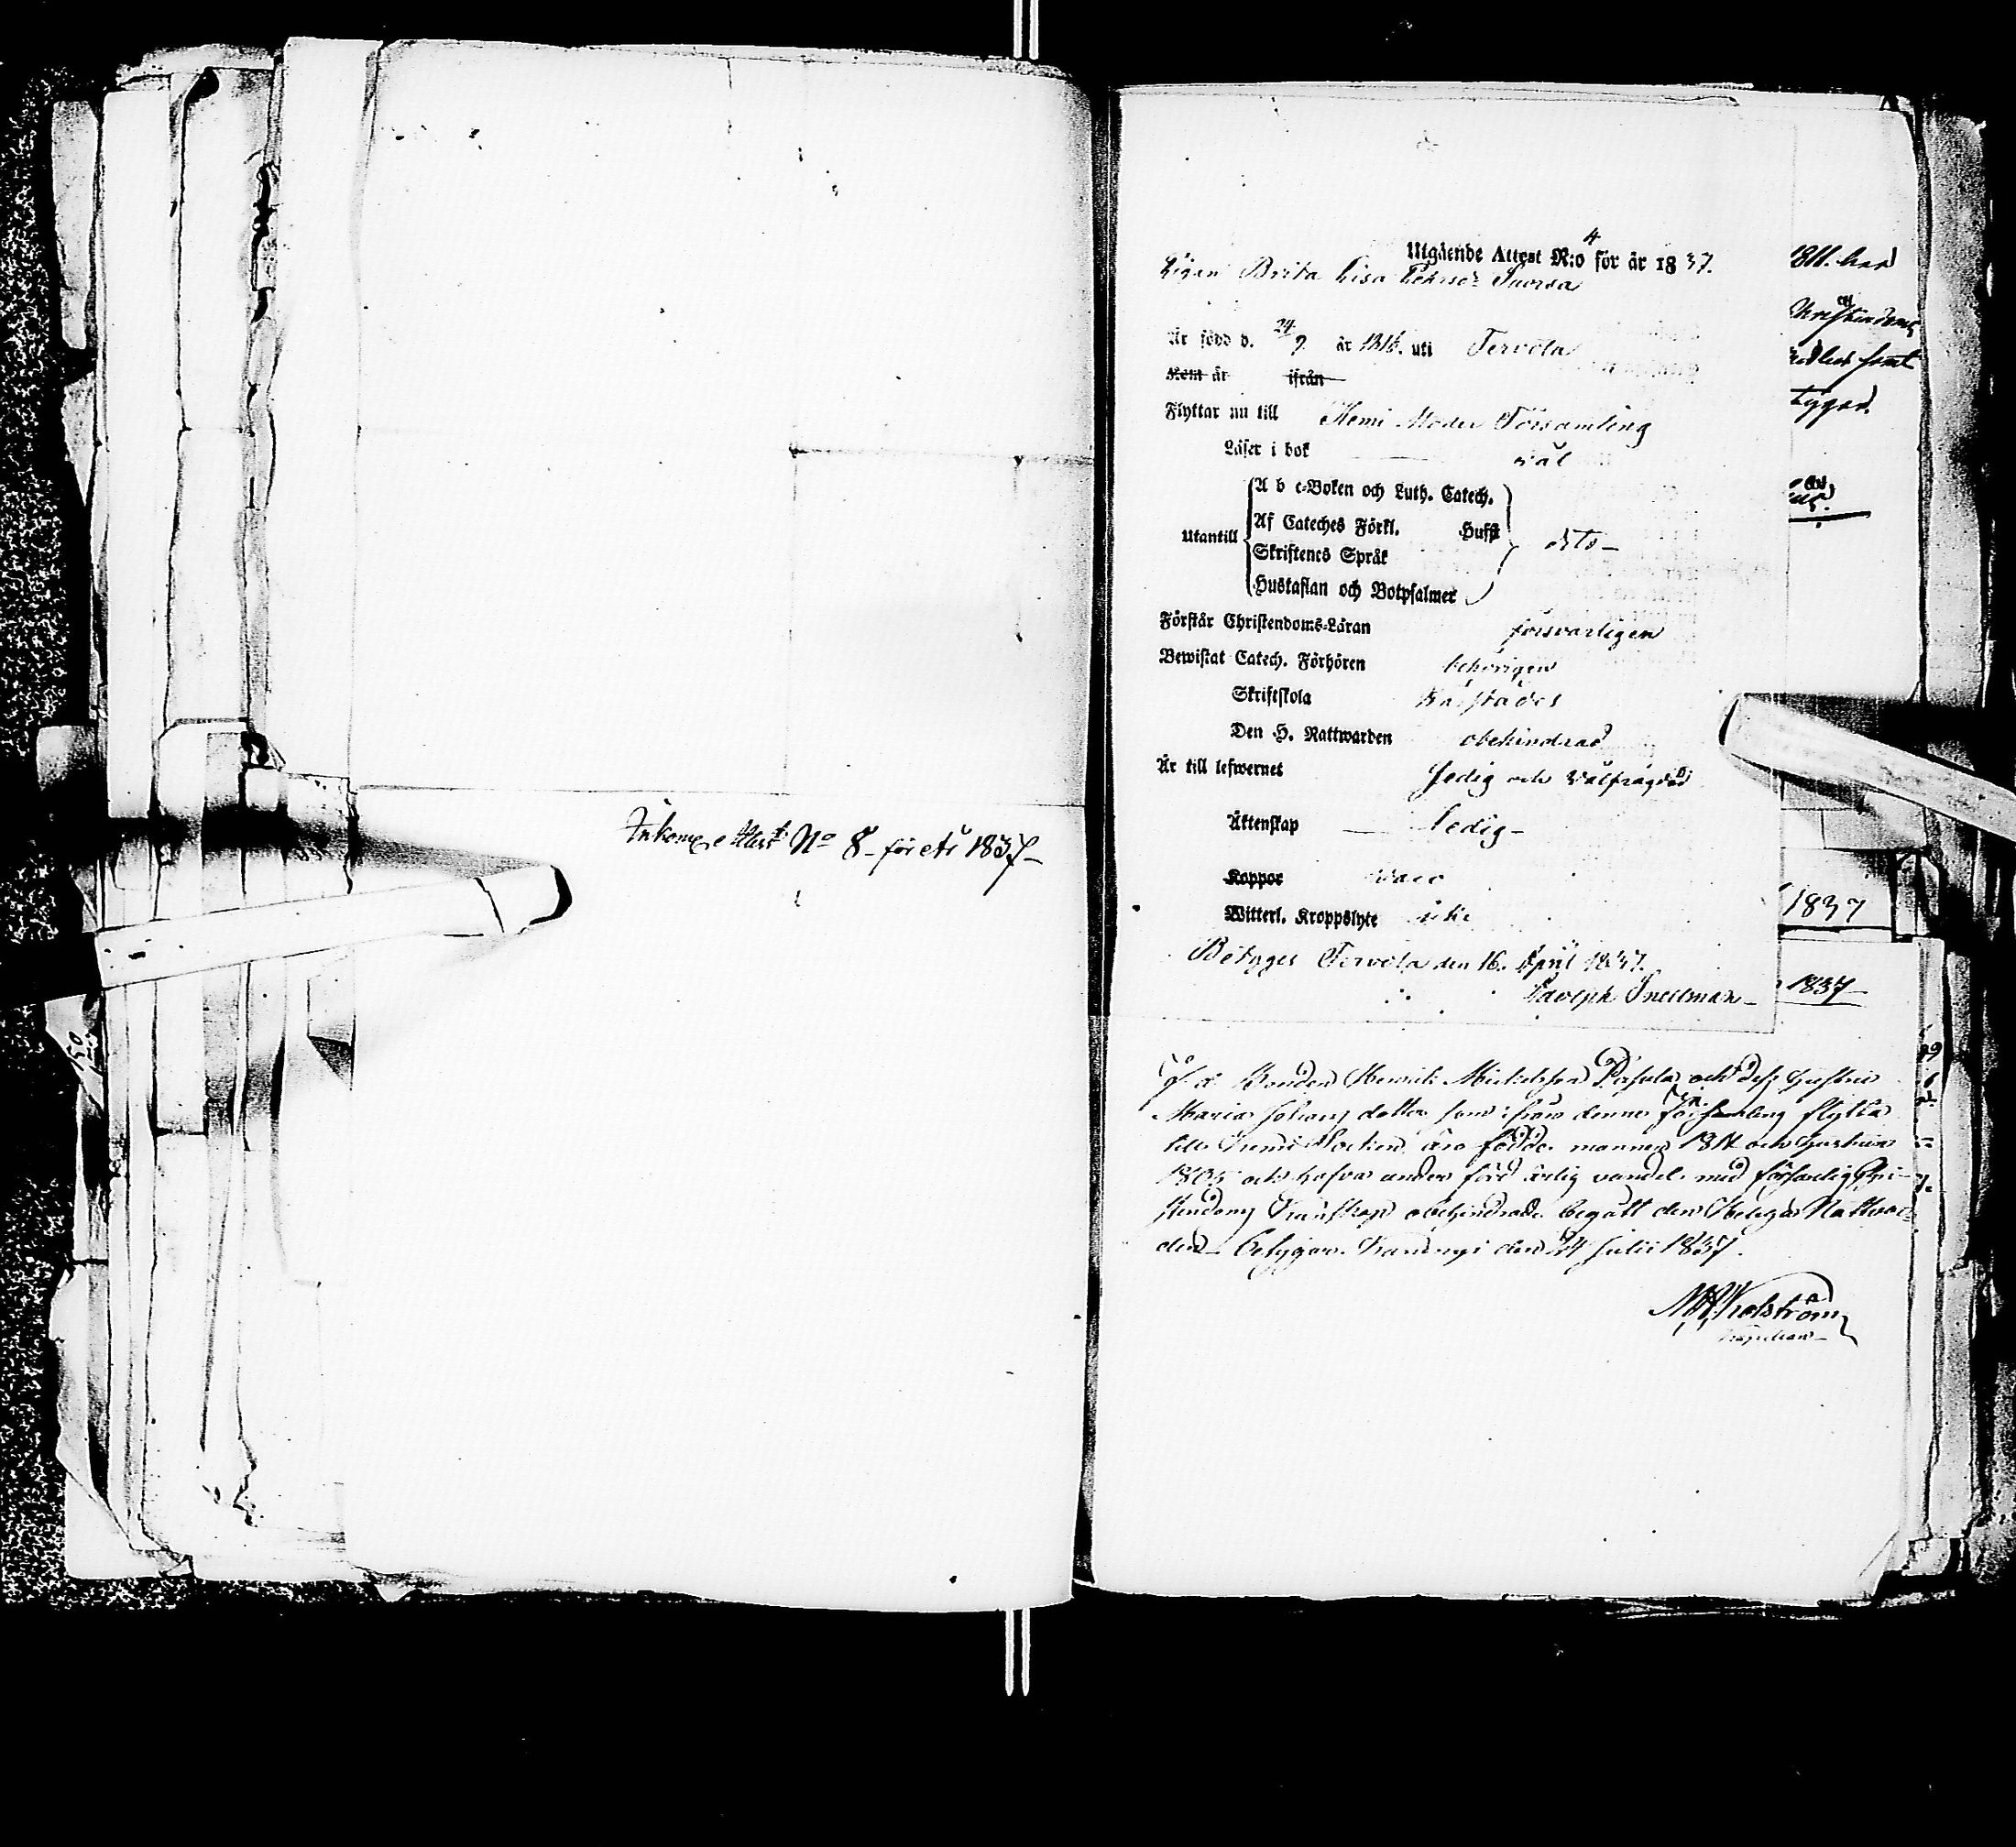 Inkom. Attest No 8 för år 1837
Utgående Attest N:o 4 för år 1837.
Pigan Brita Lisa Pehrsdr Suorsa
Är född d. 24/9 år 1816. uti Tervola
Kom år ifrån
Flyttar nu till Kemi Moder Församling
Läser i bok väl
Utantill
A b c-Boken och Luth. Catech.
Af Cateches Förkl. Hufst
Skriftenes Språk
Hustaflan och Botpsalmer
dito
Förstår Christendoms-Läran försvarligen
Bewistat Catech. Förhören behörigen
Skriftskola
Den H. Nattwarden obehindrad
Är till lefwernet sedig och välfrägdad
Äktenskap Ledig
Koppor
Witterl. Kroppslyte icke
Betyges Tervola den 16. April 1837.
Adolph Snellman
F. d. Bonden Henrik Michelsson och dess hustru
Maria Johans dotter som ifrån denne Församling flytta
till Kemi Socken äro födde mannen 18 och hustrun
1805 och hafva under förd ärlig vandel med försvarlig Chri-
stendoms Kunskap obehindrade begått den Heliga Nattvar-
den betygar. den 24 Julii 1837.
Kapellan
1811. har
Christendoms
samt
tygar.
1837
1837
150